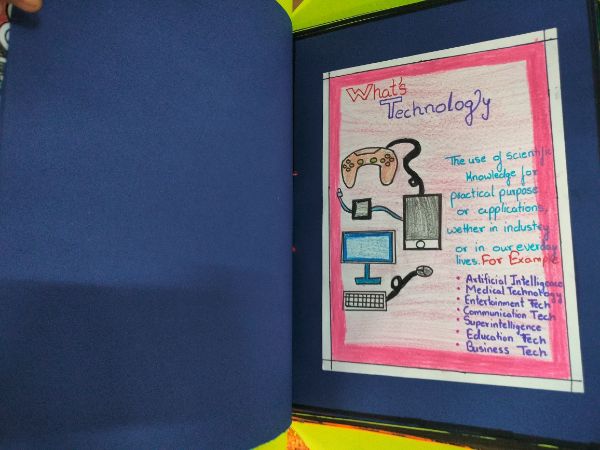 What's
Technology
The use of scientific
knowledge for
practical purpose
or applications,
wether in industry
or in our everyday
lives. For Example
• Artificial Intelligence
• Medical Technology
• Entertainment Tech
• Communication Tech
• Superintelligence
• Education Tech
• Business Tech